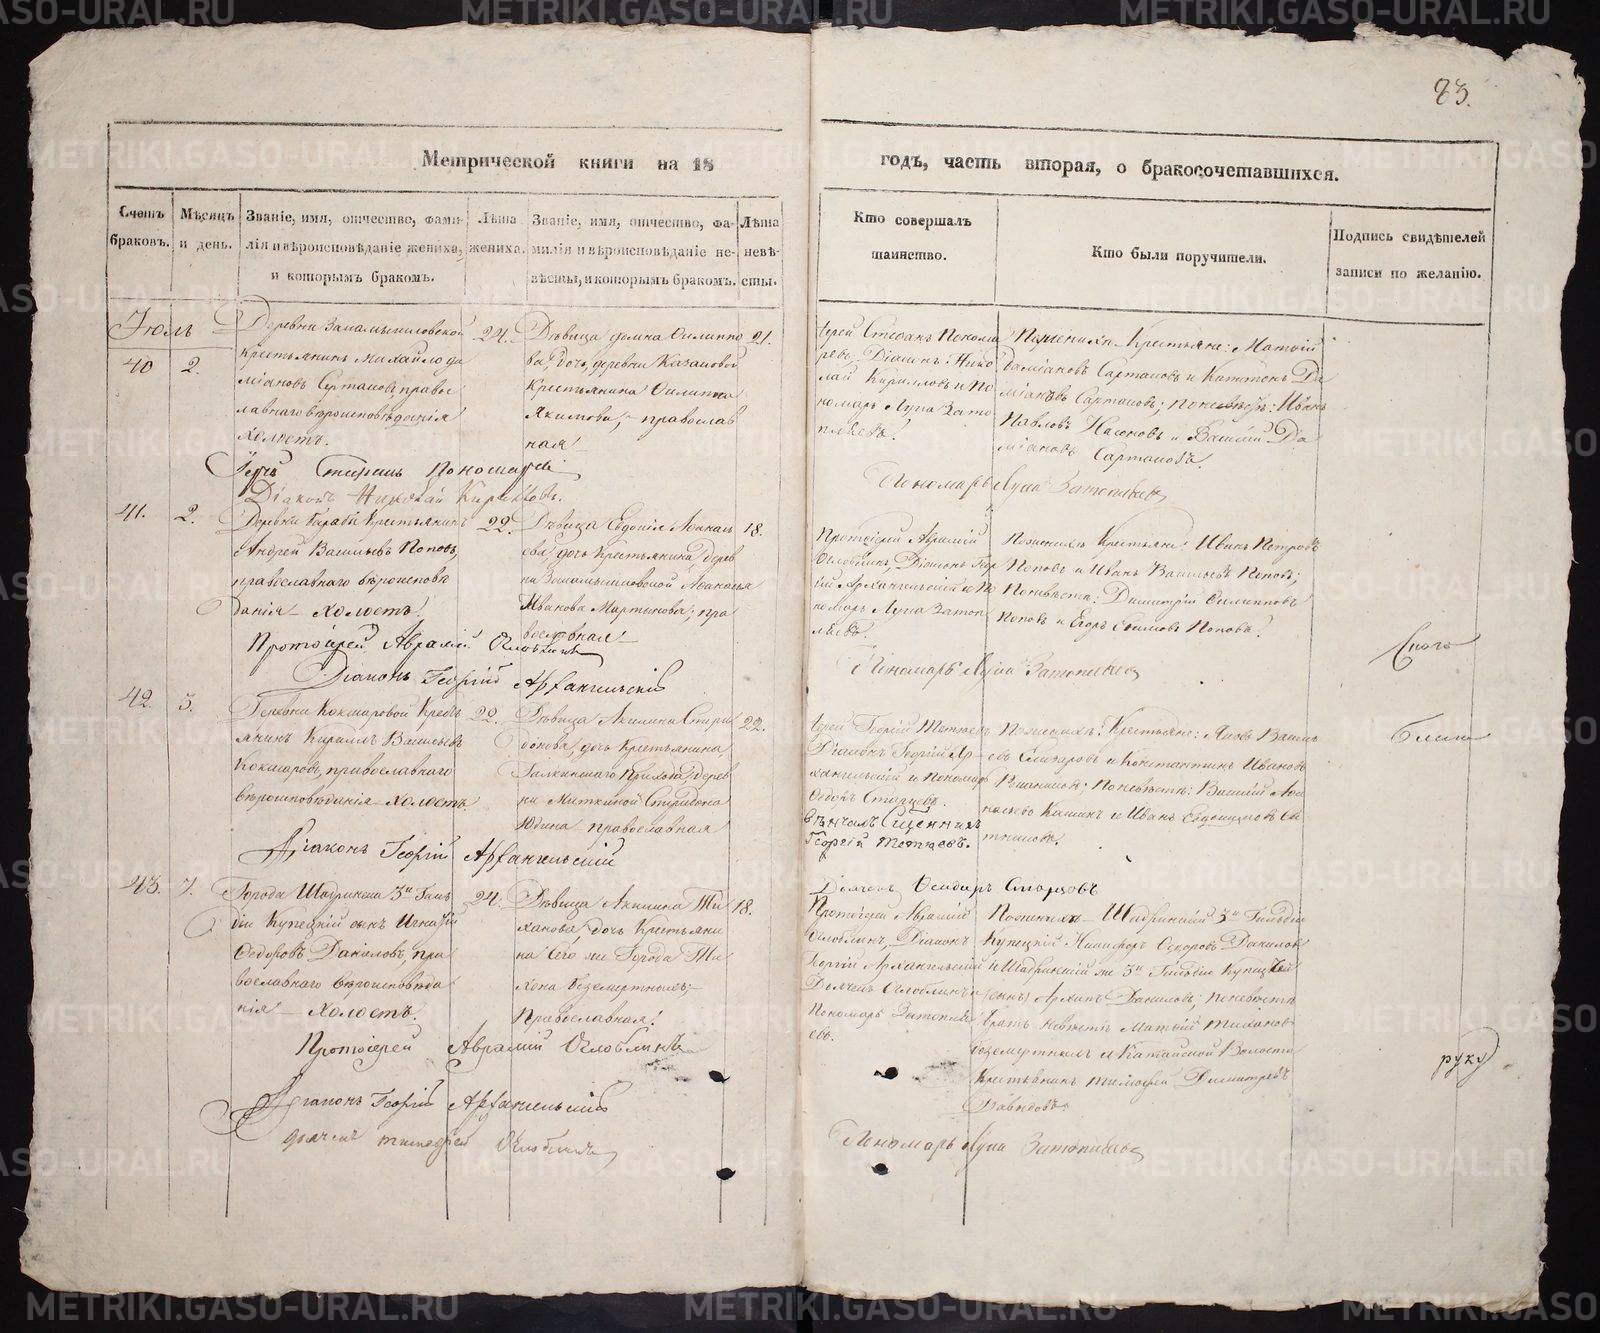 83.
Метрической книги на 18
годъ, часть вторая, о бракосочетавшихся.
Счетъ браковъ.
Мѣсяцъ и день.
Званіе, имя, отчество, фами-
лія и вѣроисповѣданіе жениха,
и которымъ бракомъ.
Лѣта
жениха.
Званіе, имя, отчество, фа-
милія и вѣроисповѣданіе не-
вѣсты, и которымъ бракомъ.
Лѣта
невѣ-
сты.
Кто совершалъ
таинство.
Кто были поручители.
Подпись свидѣтелей
записи по желанію.
Іюль
40
2.
Деревни Замамыловской
крестьянинъ Михайло Да
міановъ Сартаковъ, правос
лавнаго вѣроисповѣданія
холостъ.
24.
Дѣвица Домна Филиппо
ва, дочь, деревни Казаковой
Крестьянина Филиппа
Якимова, православ
ная
21.
Іерей Стефанъ Понома
ревъ Діаконъ Нико
лай Кириловъ и По
номарь Лупа Зато
пляевъ.
По женихѣ Крестьяне: Матѳій
Даміановъ Сартаковъ и Да
міановъ Сартаковъ; по невѣстѣ: Иванъ
Павловъ и Василій Да
міановъ Сартаковъ.
Іерей Стефанъ Пономаревъ
Діаконъ Николай Кириловъ.
Пономарь Лупа Затопляевъ
41.
2.
Деревни Крестьянинъ
Андрей Васильевъ Поповъ,
православнаго вѣроисповѣ
данія холостъ
22.
Дѣвица Евдокія Аѳанась
ева, дочь Крестьянина, дерев
ни Замамыловской Аѳанасья
Иванова Мартюшова; пра
вославная
18.
Протоіерей Аврамій
Оглоблинъ, Діаконъ Геор
гій Архангельскій и По
номарь Лупа Затоп
ляевъ.
По женихѣ Крестьяне: Иванъ Петровъ
Поповъ и Иванъ Васильевъ Поповъ;
По невѣстѣ: Димитрій Филипповъ
Поповъ и Егоръ Поповъ.
Протоіерей Аврамій Оглоблинъ
Діаконъ Георгій Архангельскій
Пономарь Лупа Затопляевъ
42.
3.
Деревни Кокшаровой Кресть
янинъ Кириллъ Васильевъ
Кокшаровъ, православнаго
вѣроисповѣданія холостъ.
22.
Дѣвица Акилина Спири
донова, дочь Крестьянина,
Галкинскаго Прихода, дерев
ни Миткиной Спиридона
Юдина православная
22.
Іерей Георгій Тетюевъ
Діаконъ Георгій Ар
хангельскій и Пономарь
Ѳедоръ Старцевъ.
Вѣнчалъ Священникъ
Георгій Тетюевъ.
По женихѣ: Крестьяне: Яковъ Василь
евъ и Константинъ Ивановъ
по невѣстѣ: Василій Аѳа
насьевъ и Иванъ Евдокимовъ
Діаконъ Георгій Архангельскій
Дьячекъ Ѳеодоръ Старцовъ
43.
7.
Города Шадринска 3й Гиль
діи Купецкій сынъ Игнатій
Ѳедоровъ Даниловъ, пра
вославнаго вѣроисповѣда
нія холостъ.
24.
Дѣвица Акилина Ти
ханова, дочь Крестьяни
на сего же Города Ти
хона Безсмертныхъ;
Православная.
18.
Протоіерей Аврамій
Оглоблинъ, Діаконъ
Георгій Архангельскій
Дьячекъ Оглоблинъ и
Пономарь Затопля
евъ.
По женихѣ Шадринскій 3й Гильдіи
Купецкій Никифоръ Ѳедоровъ Данилов
и Шадринскій же 3й Гильдіи Купецкій
сынъ Даниловъ; по невѣстѣ
братъ невѣсты Матѳій Тихановъ
Безсмертныхъ и Катайской Волости
Крестьянинъ Тимоѳей Димитріевъ
Давыдовъ
Протоіерей Аврамій Оглоблинъ
Діаконъ Георгій Архангельскій
дьячекъ Оглоблинъ
Пономарь Лупа Затопляевъ
руку
METRIKI.GASO-URAL.RU